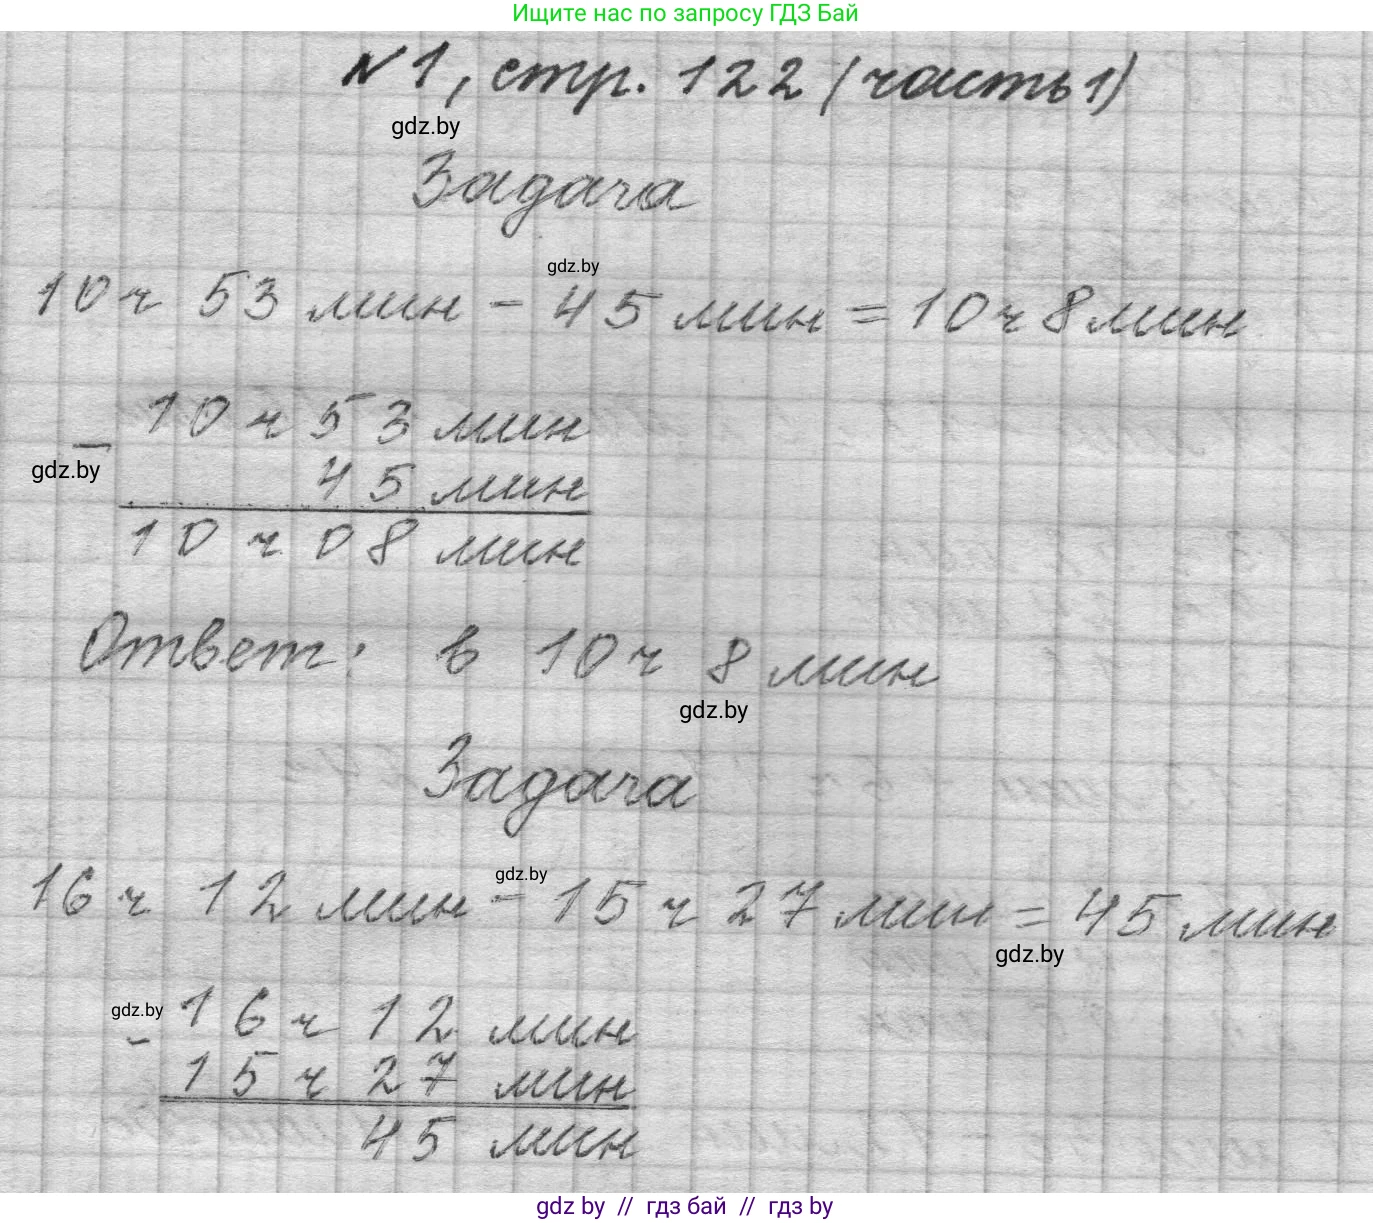 Ищите нас по запросу ГДЗ Бай
№1, стр. 122 (часть 1)
gdz.by
Задача
gdz.by
10 ч 53 мин - 45 мин = 10 ч 8 мин
- 10 ч 53 мин
gdz.by
45 мин
10 ч 08 мин
Ответ: в 10 ч 8 мин
gdz.by
Задача
gdz.by
16 ч 12 мин - 15 ч 27 мин = 45 мин
gdz.by
gdz.by
- 16 ч 12 мин
15 ч 27 мин
45 мин
gdz by // гдз бай // гдз by